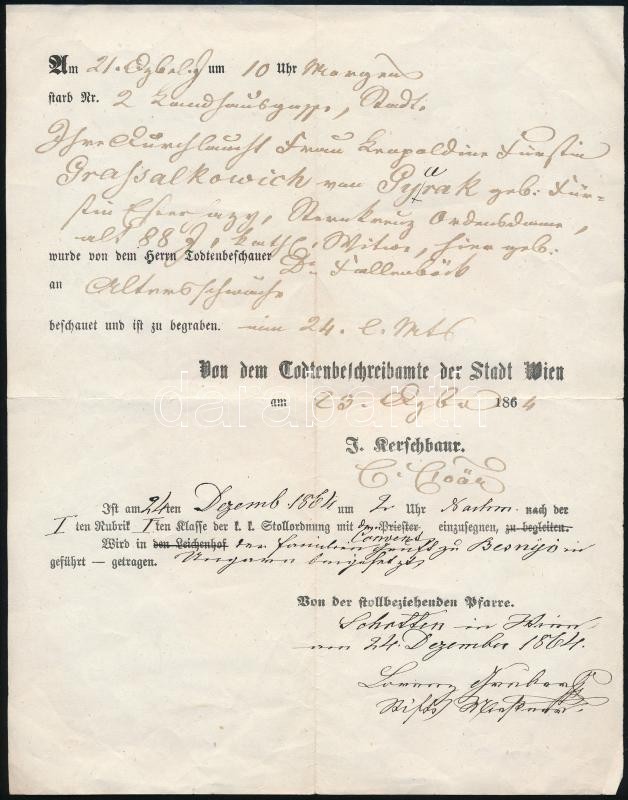 Am 21. Xbr l. J um 10 Uhr Morgens
starb Nr. 2 Landhausgasse, Stadt.
Ihre Durchlaucht Frau Leopoldine Fürstin
Grassalkowich von Gyarak geb: Für-
stin Eszerhazy, Sternkreuz Ordensdame,
alt 88 J, kath, Witwe, hier geb:
wurde von dem Herrn Todtenbeschauer Dr Fallenböck
an Altersschwäche
beschauet und ist zu begraben. am 24. l. Mts
Von dem Todtenbeschreibamte der Stadt Wien
am 23. Xbr 1864
J. Kerschbaur.
Ist am 24ten Dezemb 1864 um 2 Uhr Nachm. nach der
I ten Rubrik I ten Klasse der k. k. Stollordnung mit dem Priester Convent einzusegnen, zu begleiten.
Wird in den Leichenhof der Familien Gruft zu Besnijö in
geführt — getragen. Ungarn beigesetzt
Von der stollbeziehenden Pfarre.
Schotten in Wien
am 24. Dezember 1864.
Lorenz Gruber
Stifts
darabanth